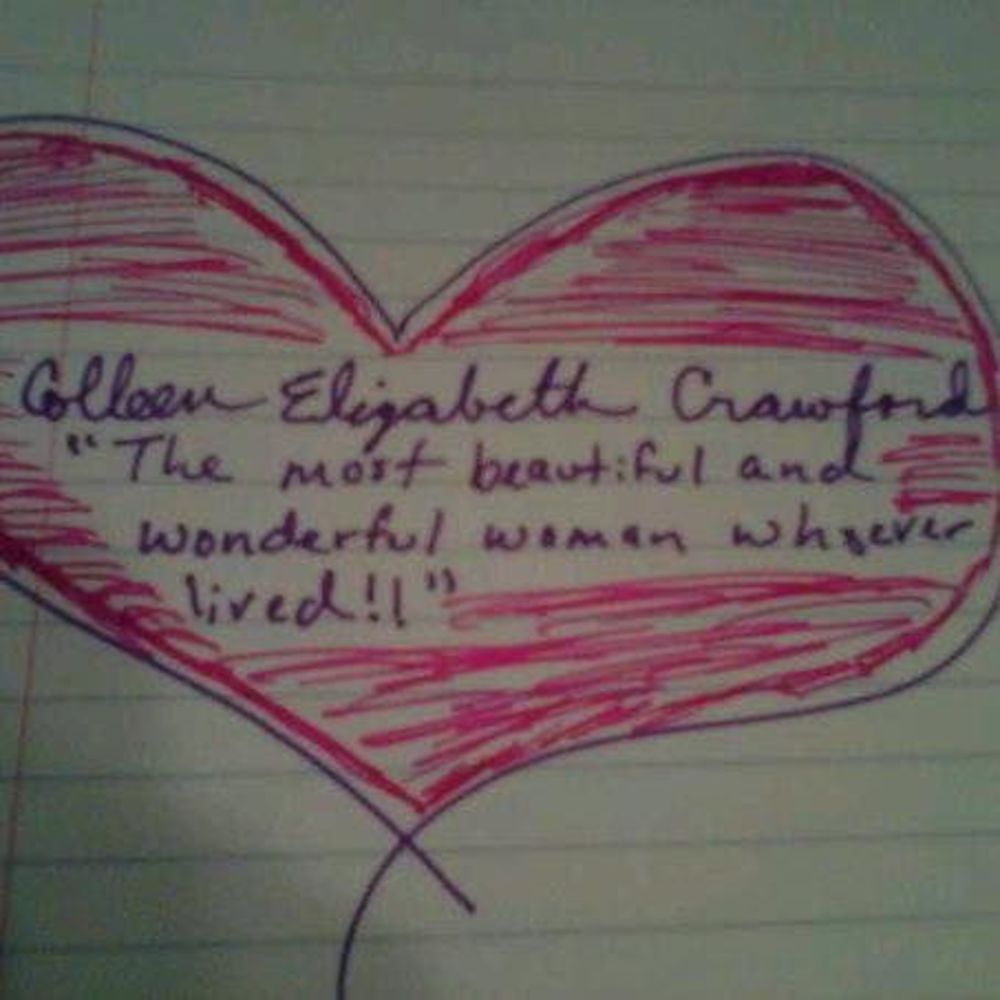 Colleen Elizabeth Crawford
"The most beautiful and
wonderful woman whoever
lived!!"